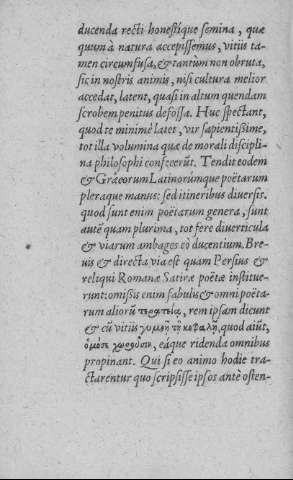 ducenda recti honestique semina, quæ
quum à natura accepissemus, vitiis ta-
men circumfusa, & tantùm non obruta,
sic in nostris animis, nisi cultura melior
accedat, latent, quasi in altum quendam
scrobem penitus defossa. Huc spectant,
quod te minimè latet, vir sapientissime,
tot illa volumina quæ de morali discipli-
na philosophi confecerūt. Tendit eodem
& Græcorum Latinorúmque poëtarum
pleraque manus: sed itineribus diversis.
quod sunt enim poëtarum genera, sunt
autē quam plurima, tot fere diverticula
& viarum ambages eò ducentium. Bre-
vis & directa via est quam Persius &
reliqui Romanæ Satiræ poëtæ institue-
runt: omissis enim fabulis & omni poëta-
rum aliorū τερατεία, rem ipsam dicunt
& cū vitiis γυμνῇ τῇ κεφαλῇ, quod aiūt,
ὁμόσε χωροῦσιν, eáque ridenda omnibus
propinant. Qui si eo animo hodie tra-
ctarentur quo scripsisse ipsos antè osten-